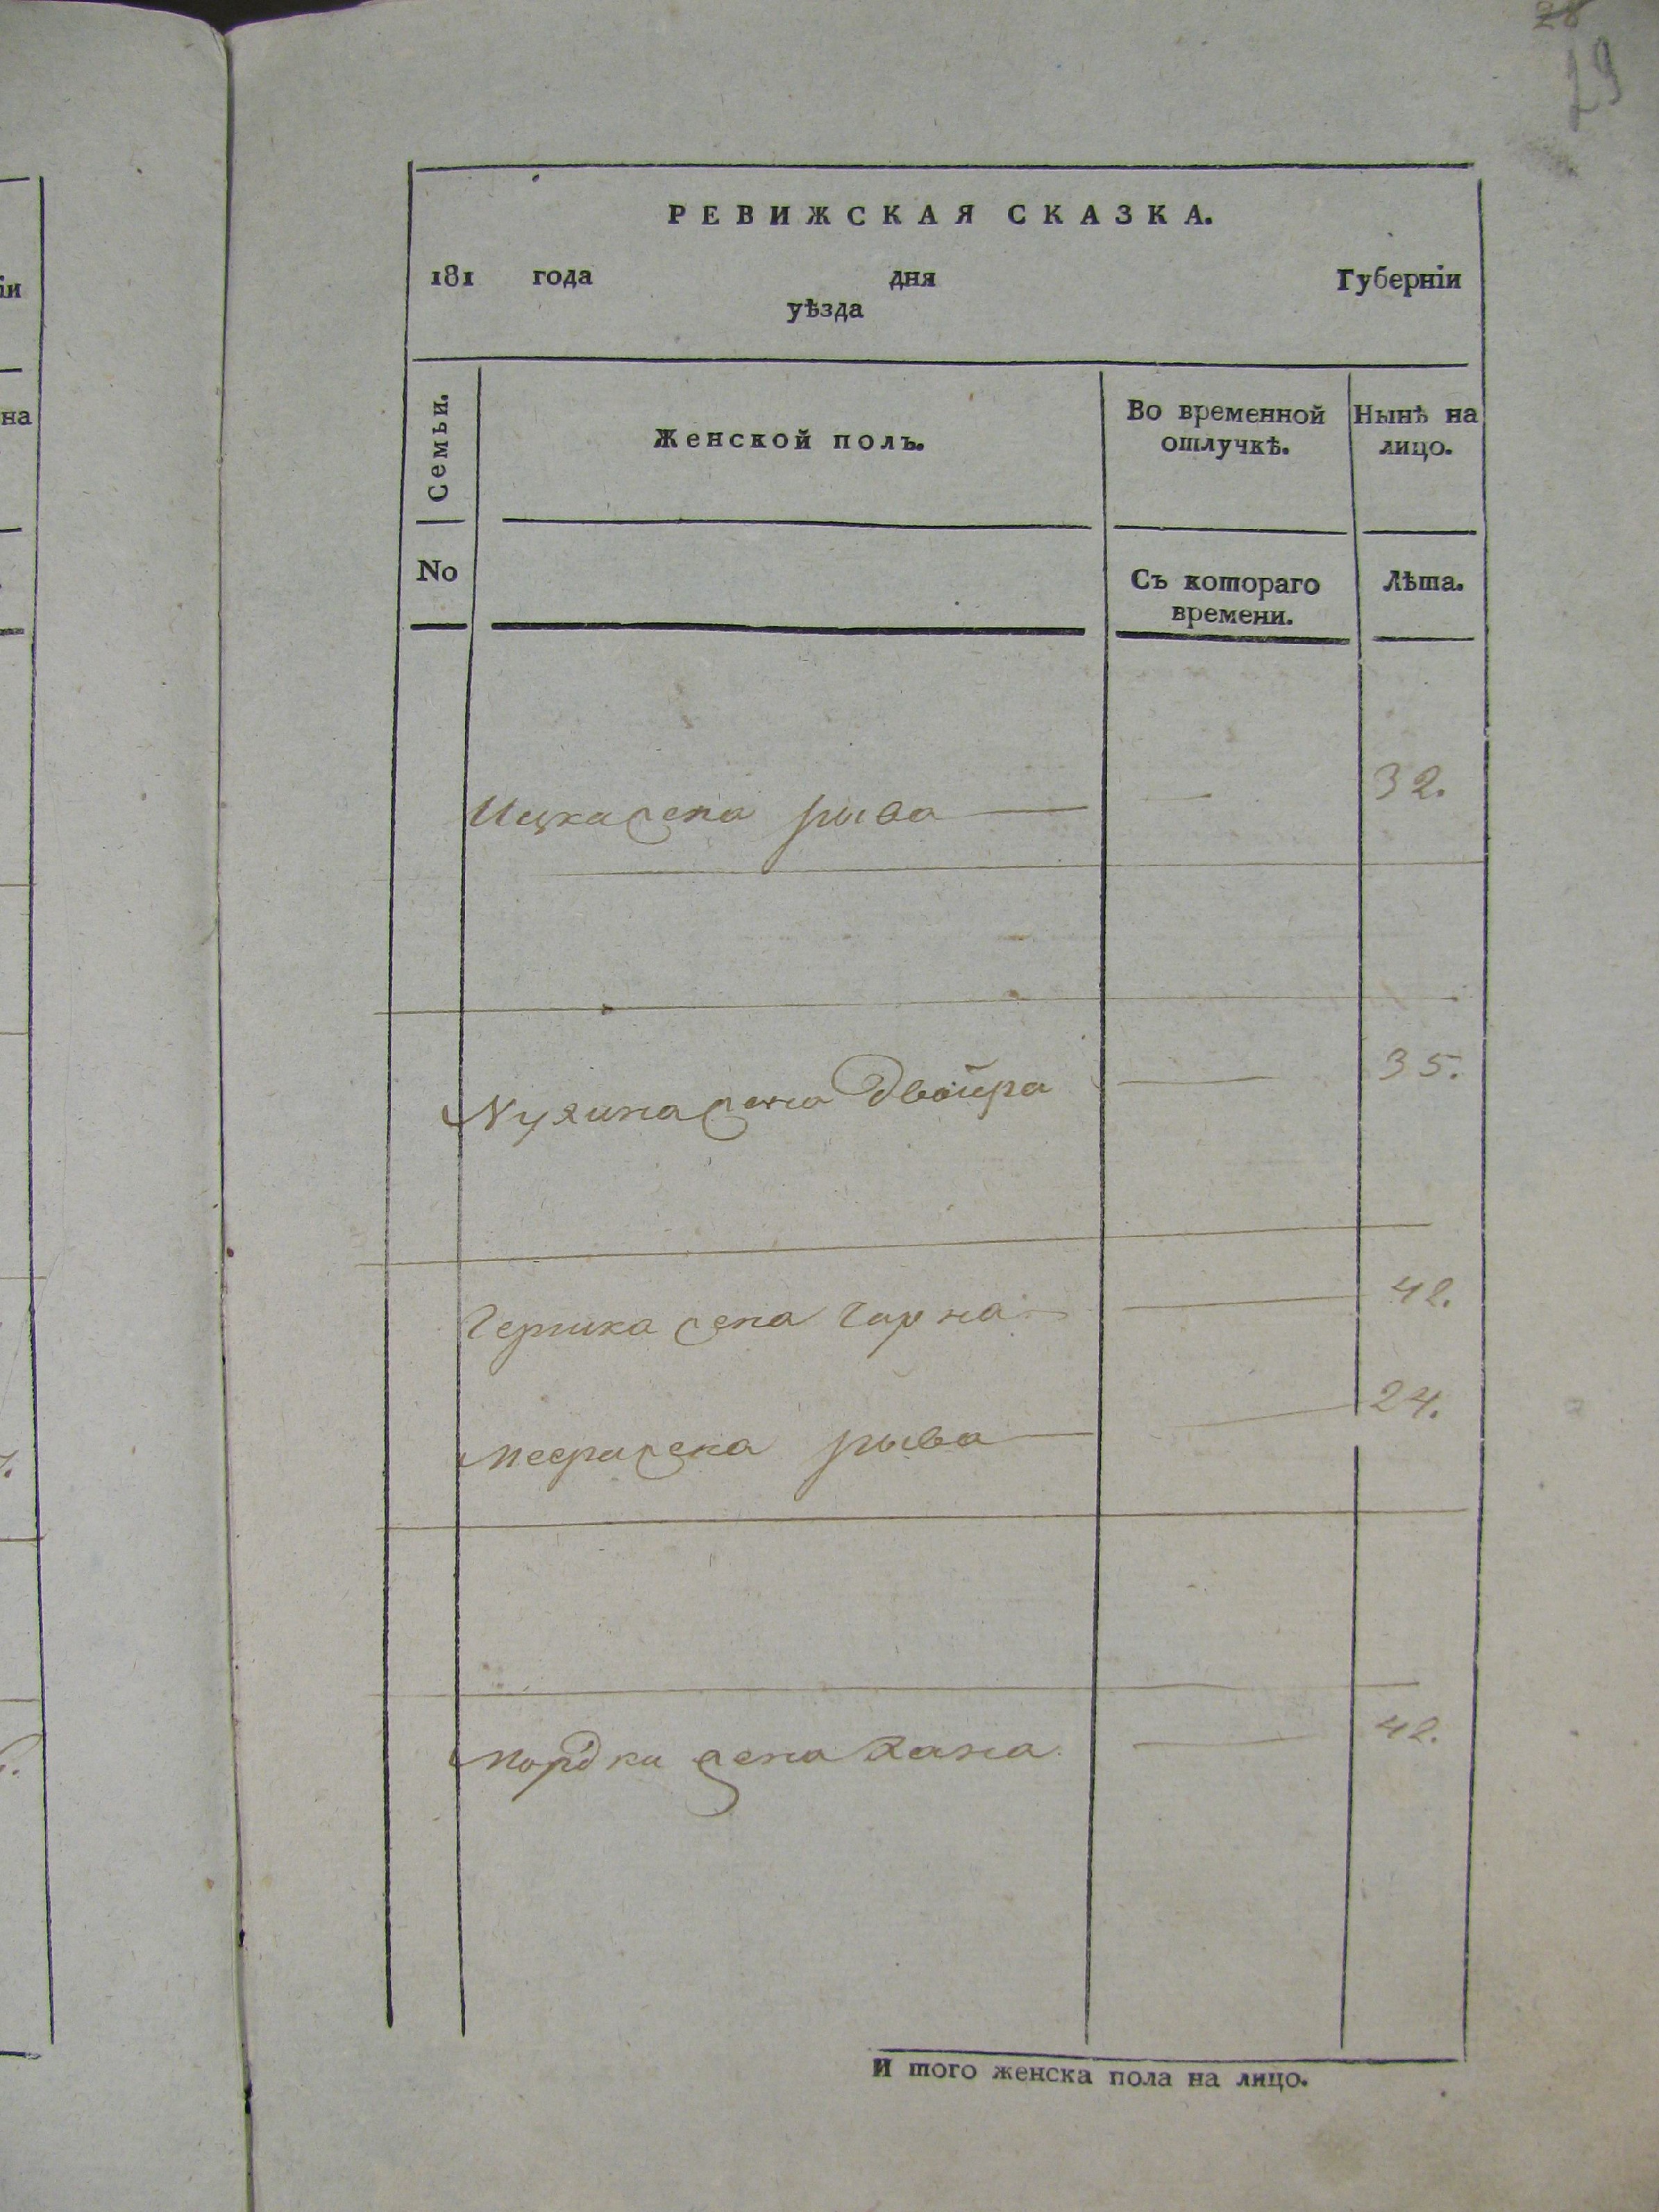 28
29
РЕВИЖСКАЯ СКАЗКА.
181 года дня Губернїи
уѣзда
Семьи.
Женской полъ.
Во временной отлучкѣ.
Нынѣ на лицо.
No
Съ котораго времени.
Лѣта.
Ицка жена рыва — — 32.
Нухина жена Двойра — 35.
Гершка жена Чарна — 42.
меера жена рыва — — 24.
мордки жена хана — 42.
И того женска пола на лицо.
їи
на